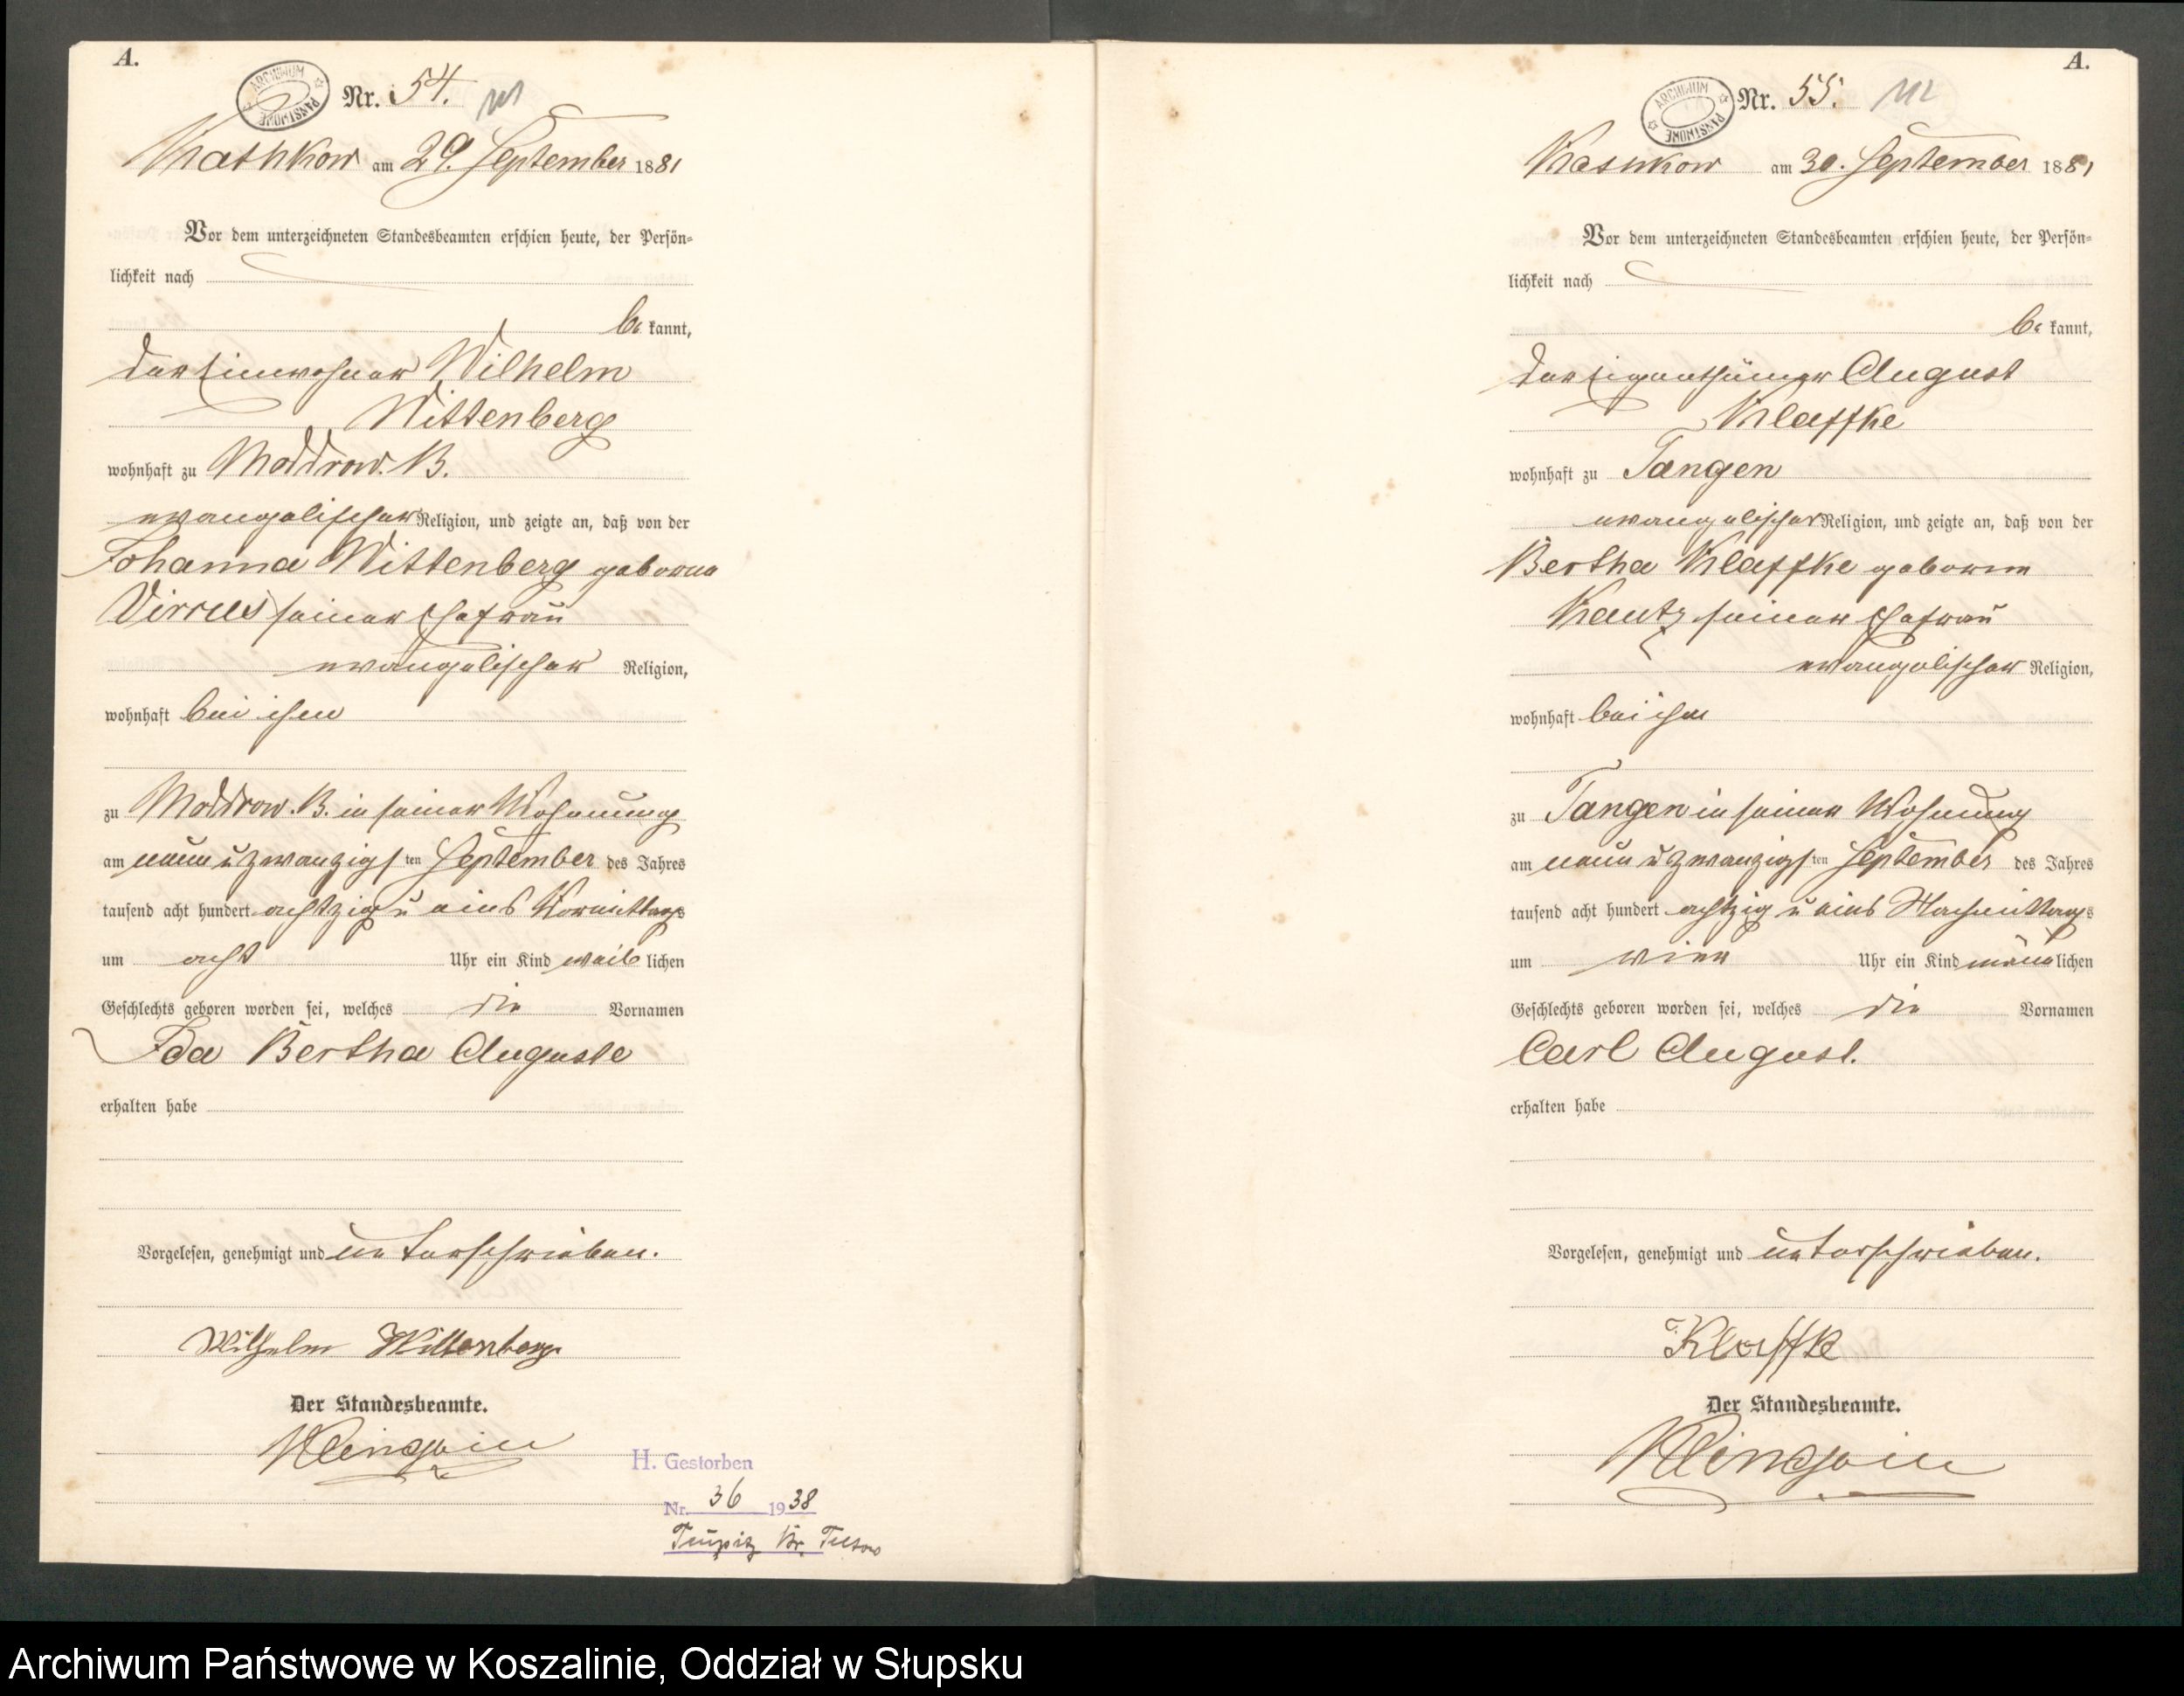 A.
ARCHIWUM PAŃSTWOWE
Nr. 54. 111
Kathkow am 29. September 1881
Vor dem unterzeichneten Standesbeamten erschien heute, der Persön-
lichkeit nach
be kannt,
der Einwohner Wilhelm
Wittenberg
wohnhaft zu Moddrow. B.
evangelischer Religion, und zeigte an, daß von der
Johanna Wittenberg geborne
Virrus seiner Ehefrau
evangelischer Religion,
wohnhaft bei ihm
zu Moddrow. B. in seiner Wohnung
am neun u zwanzigsten September des Jahres
tausend acht hundert achtzig u eins Vormittags
um acht Uhr ein Kind weiblichen
Geschlechts geboren worden sei, welches die Vornamen
Ida Bertha Auguste
erhalten habe
Vorgelesen, genehmigt und unterschrieben.
Wilhelm Wittenberg
Der Standesbeamte.
H. Gestorben
Nr. 36 1938
Teupitz Kr. Teltow
A.
ARCHIWUM PAŃSTWOWE
Nr. 55. 112
Kathkow am 30. September 1881
Vor dem unterzeichneten Standesbeamten erschien heute, der Persön-
lichkeit nach
be kannt,
der Eigenthümer August
Klaffke
wohnhaft zu Tangen
evangelischer Religion, und zeigte an, daß von der
Bertha Klaffke geborne
Kautz seiner Ehefrau
evangelischer Religion,
wohnhaft bei ihm
zu Tangen in seiner Wohnung
am neun u zwanzigsten September des Jahres
tausend acht hundert achtzig u eins Nachmittags
um vier Uhr ein Kind männlichen
Geschlechts geboren worden sei, welches die Vornamen
Carl August.
erhalten habe
Vorgelesen, genehmigt und unterschrieben.
Klaffke
Der Standesbeamte.
Archiwum Państwowe w Koszalinie, Oddział w Słupsku